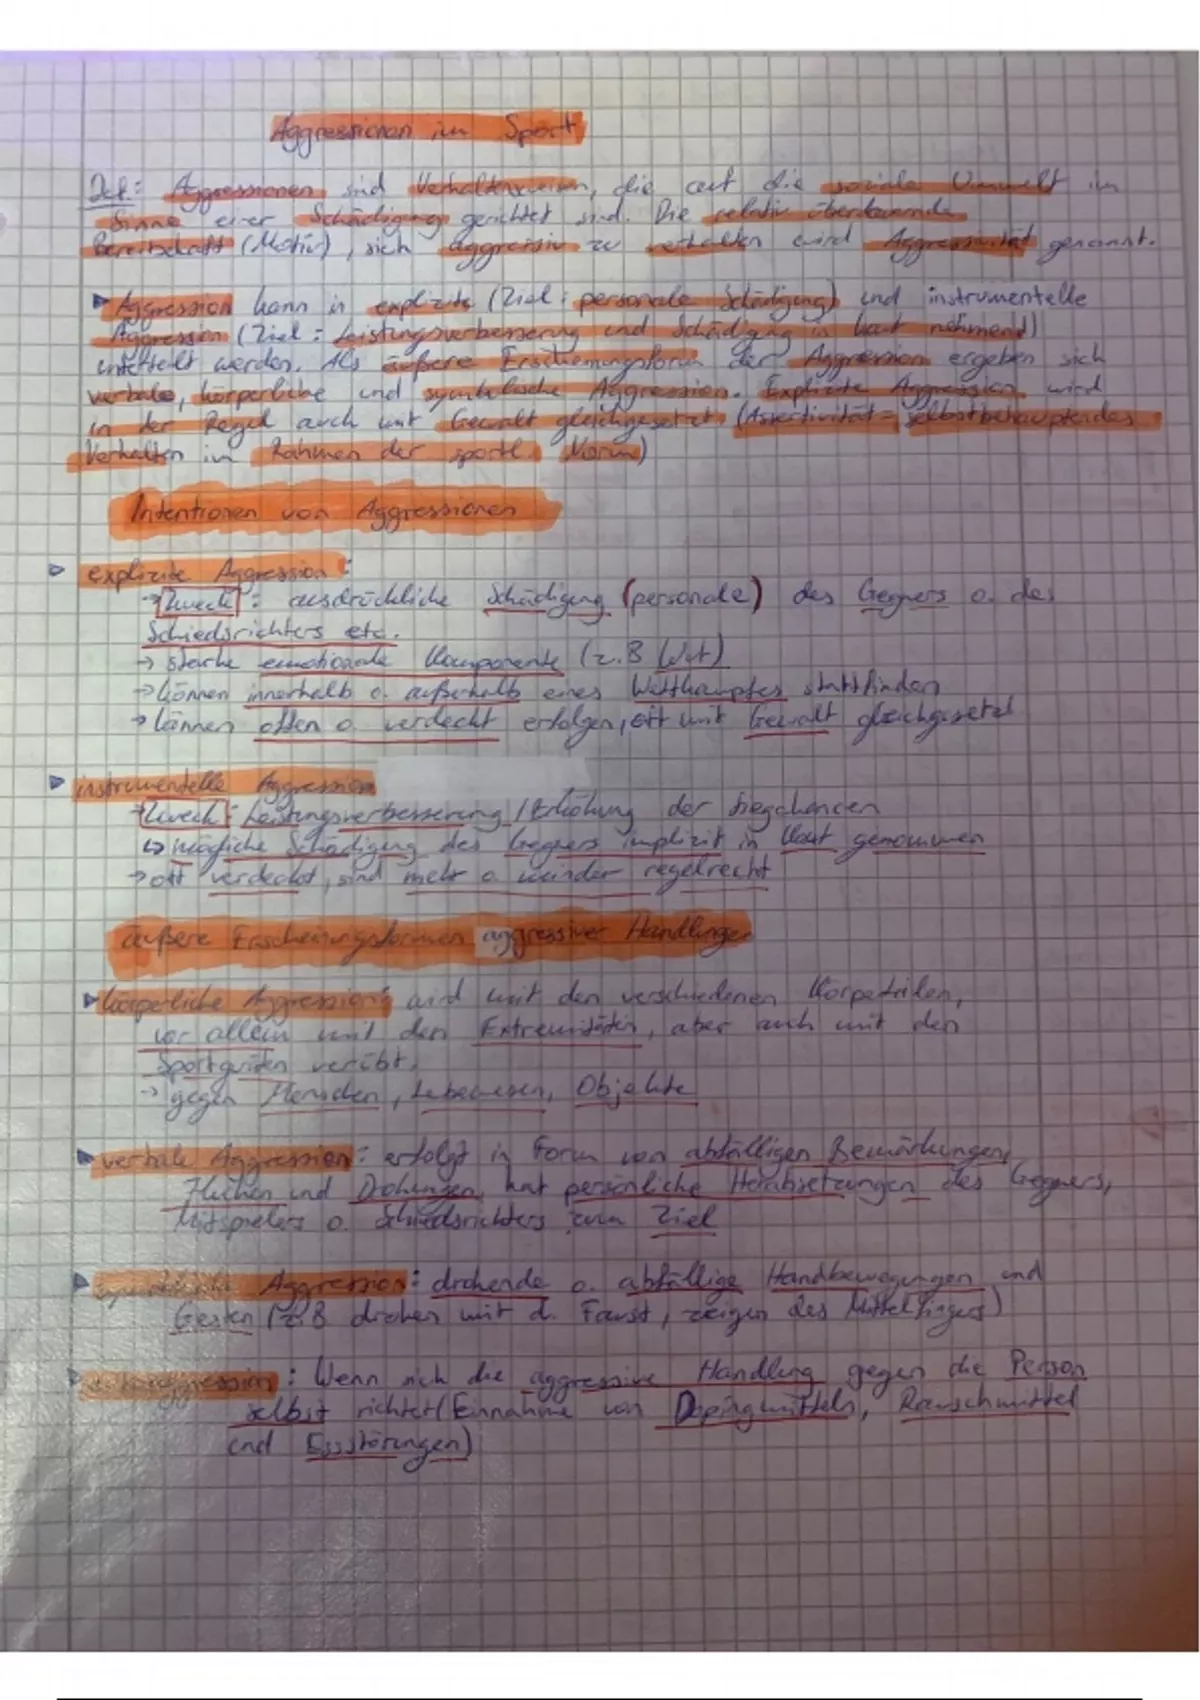 Aggressionen im Sport
Def.: Aggressionen sind Verhaltensweisen, die auf die soziale Umwelt im
Sinne einer Schädigung gerichtet sind. Die relativ überdauernde
Bereitschaft (Motiv), sich aggressiv zu verhalten wird Aggressivität genannt.
Aggression kann in explizite (Ziel: personale Schädigung) und instrumentelle
Aggression (Ziel: Leistungsverbesserung und Schädigung in kauf nehmend)
unterteilt werden. Als äußere Erscheinungsform der Aggression ergeben sich
verbale, körperliche und symbolische Aggression. Explizite Aggression wird
in der Regel auch mit Gewalt gleichgesetzt (Assertivität = selbstbehauptendes
Verhalten im Rahmen der sportl. Norm)
Intentionen von Aggressionen
explizite Aggression:
→ Zweck: ausdrückliche Schädigung (personale) des Gegners o. des
Schiedsrichters etc.
→ starke emotionale Komponente (z.B Wut)
→ können innerhalb o. außerhalb eines Wettkampfes stattfinden
→ können offen o. verdeckt erfolgen, oft mit Gewalt gleichgesetzt
instrumentelle Aggression
→ Zweck: Leistungsverbesserung / Erhöhung der Siegchancen
↳ mögliche Schädigung des Gegners implizit in Kauf genommen
→ oft verdeckt, sind mehr o. minder regelrecht
äußere Erscheinungsformen aggressiver Handlungen
körperliche Aggression: wird mit den verschiedenen Körperteilen,
vor allem mit den Extremitäten, aber auch mit den
Sportgeräten verübt.
→ gegen Menschen, Lebewesen, Objekte
verbale Aggression: erfolgt in Form von abfälligen Bemärkungen,
Flüchen und Drohungen, hat persönliche Herabsetzungen des Gegners,
Mitspielers o. Schiedsrichters zum Ziel
symbolische Aggression: drohende o. abfällige Handbewegungen und
Gesten (z.B drohen mit d. Faust, zeigen des Mittelfingers)
: Wenn sich die aggressive Handlung gegen die Person
selbst richtet (Einnahme von Dopingmitteln, Rauschmittel
und Essstörungen)